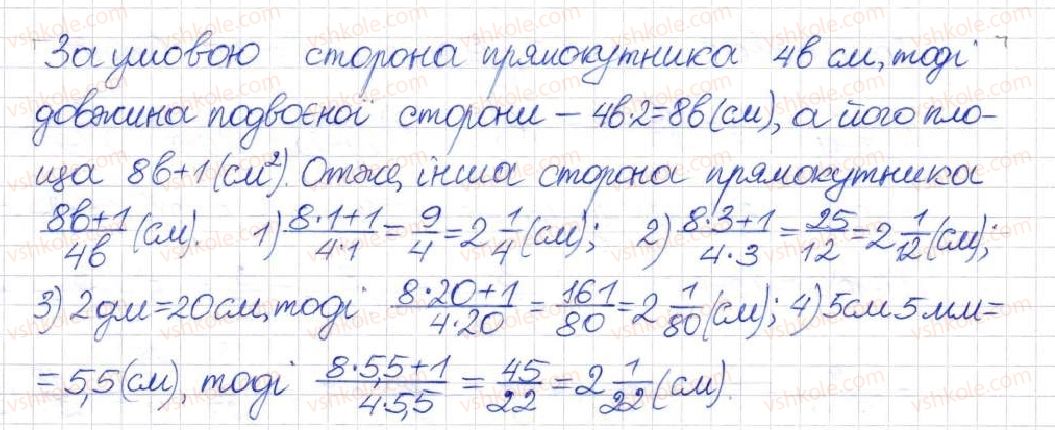 За умовою сторона прямокутника 4b см, тоді
довжина подвоєної сторони – 4b·2=8b(см), а його пло-
ща 8b+1(см²). Отже, інша сторона прямокутника
(8b+1)/4b (см). 1) (8·1+1)/(4·1) = 9/4 = 2 1/4 (см); 2) (8·3+1)/(4·3) = 25/12 = 2 1/12 (см);
3) 2дм=20см, тоді (8·20+1)/(4·20) = 161/80 = 2 1/80 (см); 4) 5см 5мм=
=5,5(см), тоді (8·5,5+1)/(4·5,5) = 45/22 = 2 1/22 (см).